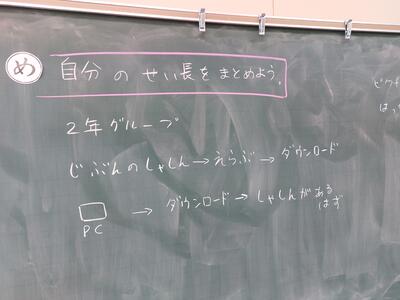 め 自分のせい長をまとめよう。
2年グループ
じぶんのしゃしん→えらぶ→ダウンロード
PC → ダウンロード→しゃしんがあるはず